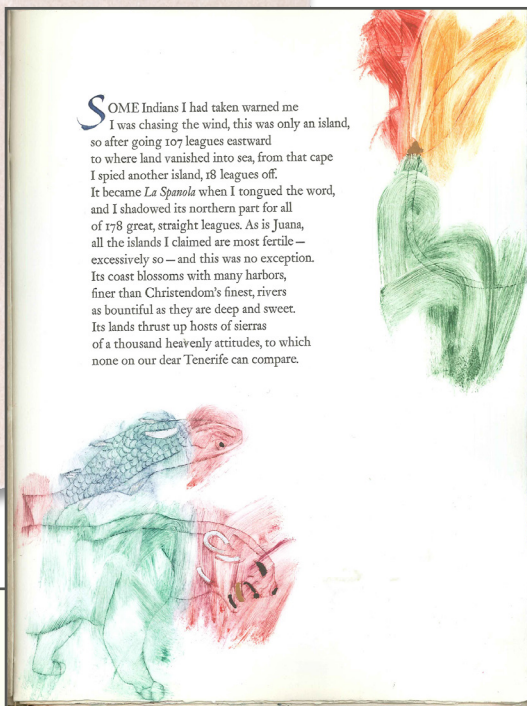 SOME Indians I had taken warned me
I was chasing the wind, this was only an island,
so after going 107 leagues eastward
to where land vanished into sea, from that cape
I spied another island, 18 leagues off.
It became La Spanola when I tongued the word,
and I shadowed its northern part for all
of 178 great, straight leagues. As is Juana,
all the islands I claimed are most fertile —
excessively so — and this was no exception.
Its coast blossoms with many harbors,
finer than Christendom's finest, rivers
as bountiful as they are deep and sweet.
Its lands thrust up hosts of sierras
of a thousand heavenly attitudes, to which
none on our dear Tenerife can compare.